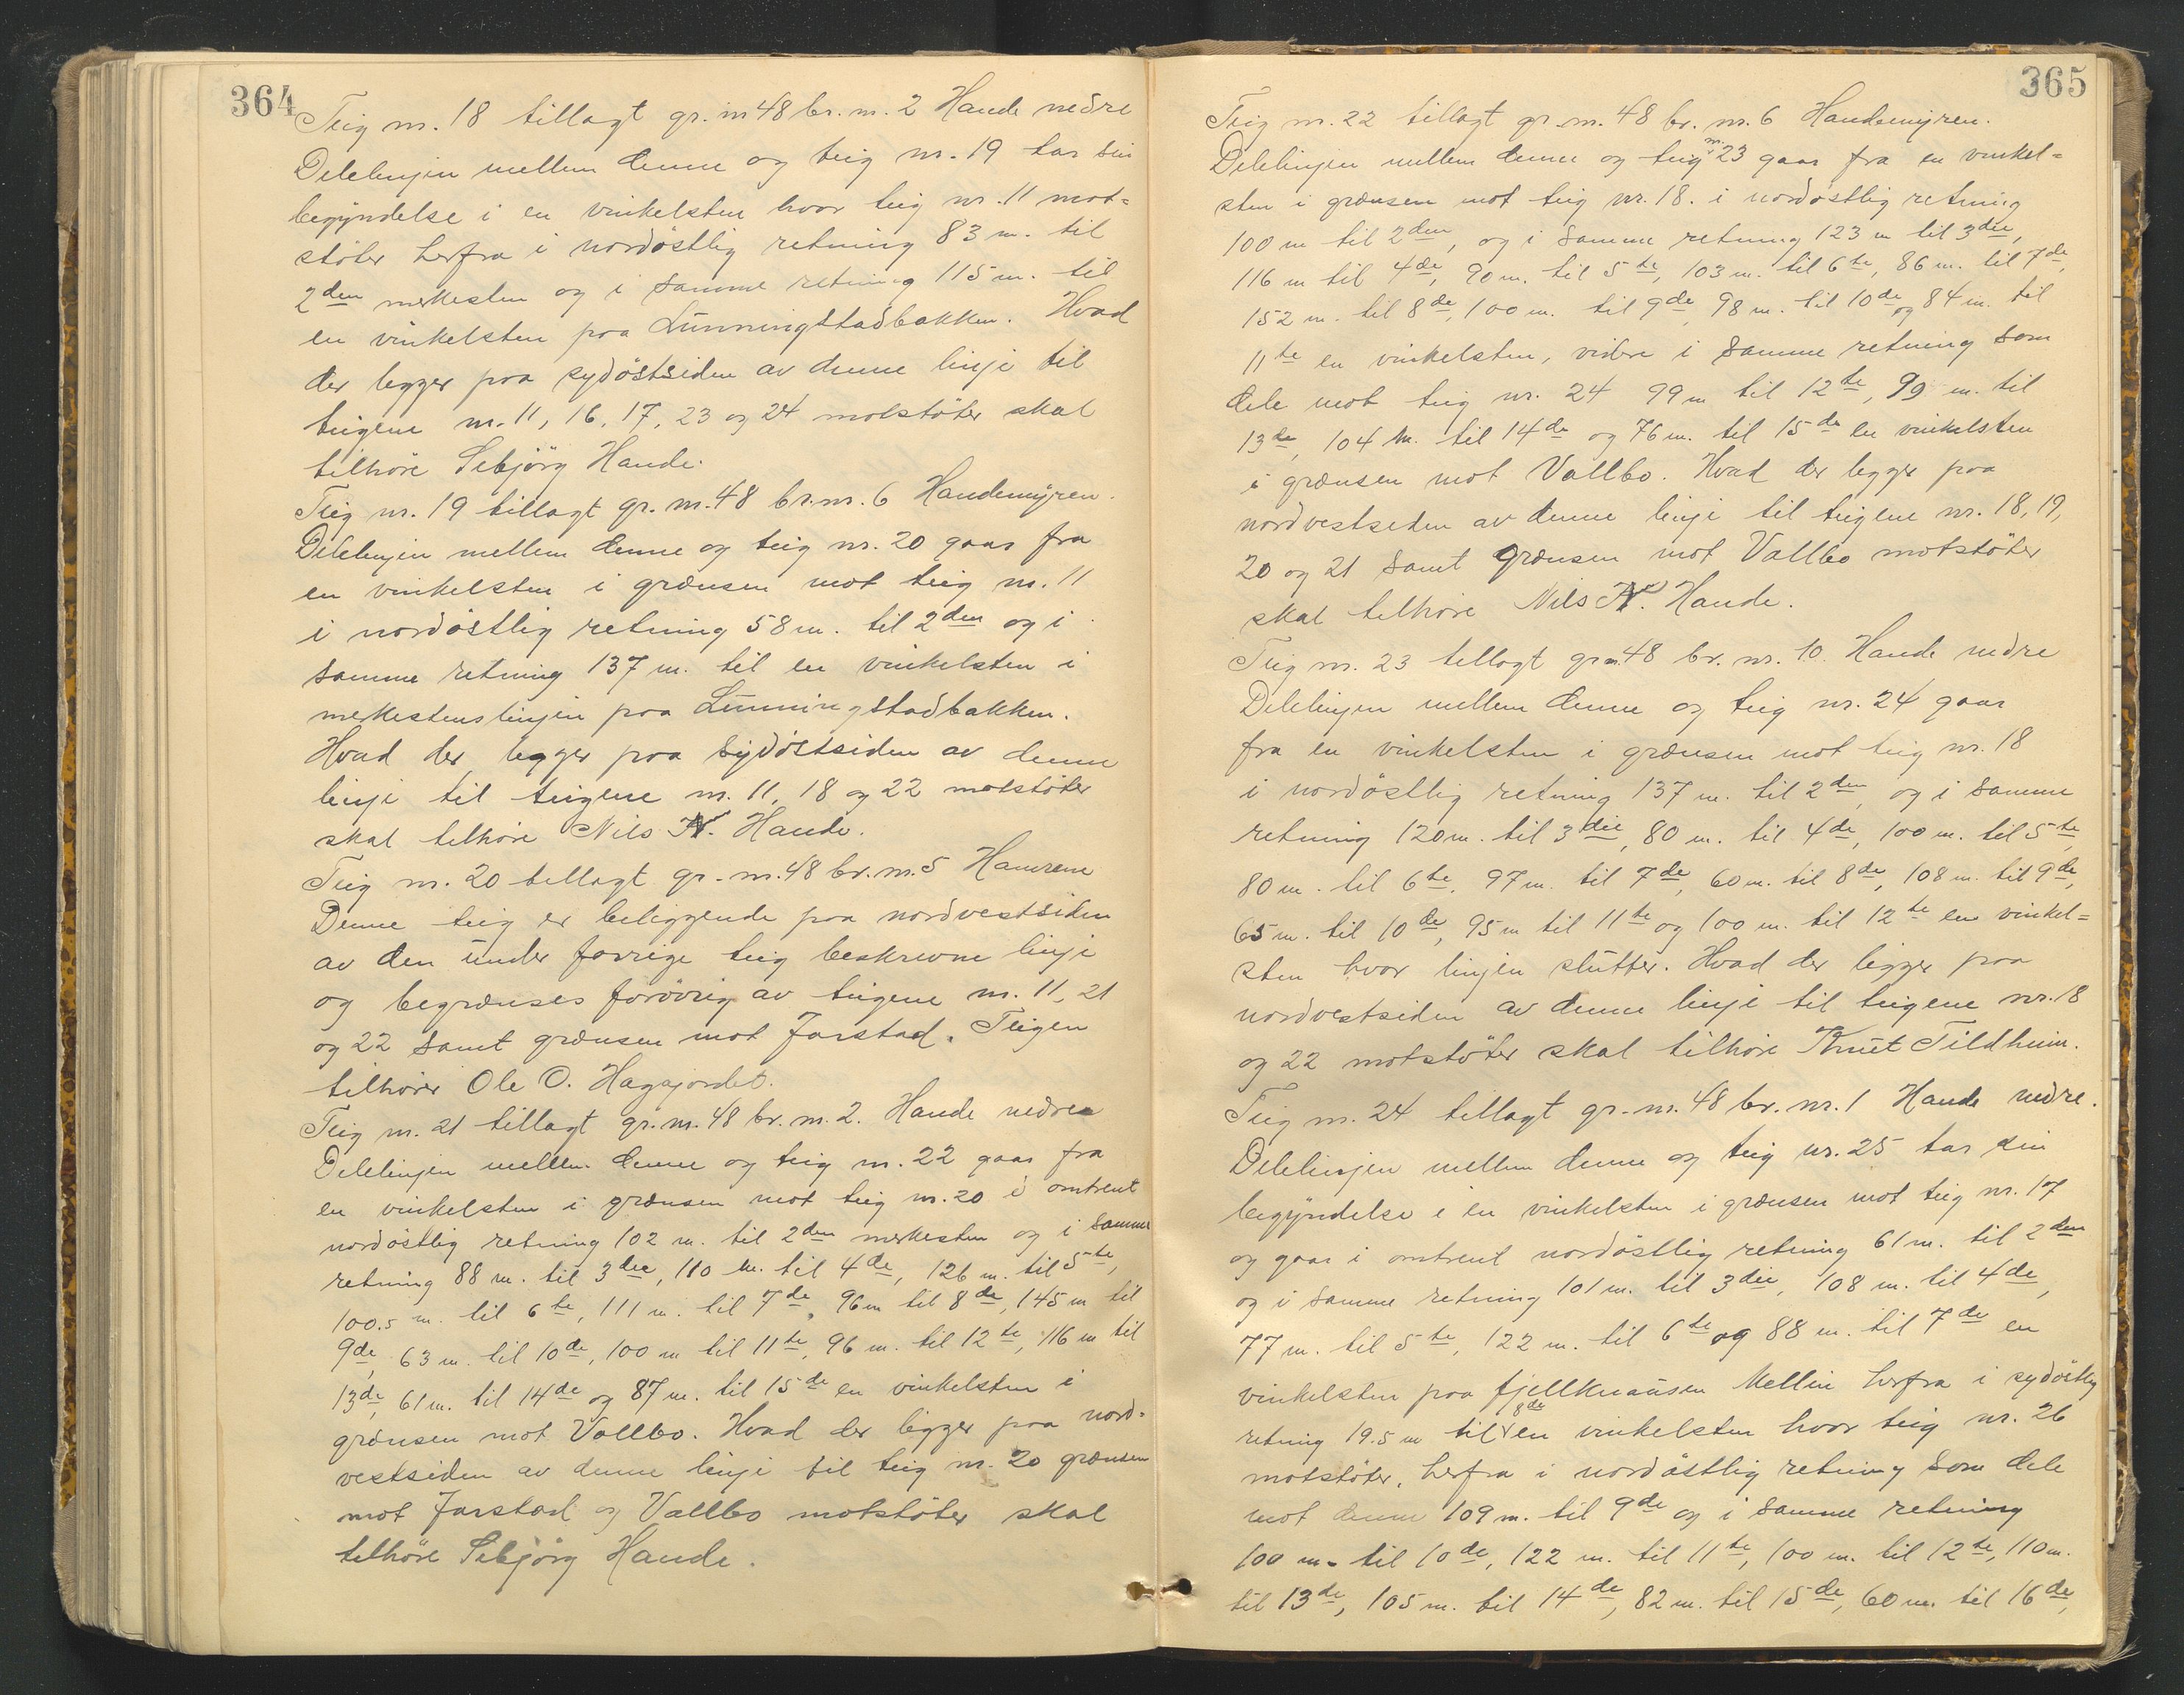 364
Teig nr. 18 tillagt gr. nr 48 br. nr. 2 Hande nedre
Delelinjen mellem denne og teig nr. 19 tar sin
begyndelse i en vinkelsten hvor teig nr. 11 mot=
støter herfra i nordöstlig retning 83 m. til
2den merkesten og i samme retning 115 m. til
en vinkelsten paa Lunningstadbakken. Hvad
der legger paa sydöstsiden av denne linje til
teigene nr. 11, 16, 17, 23 og 24 motstöter skal
tilhöre Sebjörg Hande.
Teig nr. 19 tillagt gr. nr. 48 br. nr. 6 Handemyren.
Delelinjen mellem denne og teig nr. 20 gaar fra
en vinkelsten i grænsen mot teig nr. 11
i nordöstlig retning 58 m. til 2den og i
samme retning 137 m. til en vinkelsten i
merkestenslinjen paa Lunningstadbakken.
Hvad der legger paa sydöstsiden av denne
linje til teigene nr. 11, 18 og 22 motstöter
skal tilhöre Nils N. Hande.
Teig nr. 20 tillagt gr. nr. 48 br. nr. 5 Hamrene
Denne teig er beliggende paa nordvestsiden
av den under forrige teig beskrevne linje
og begrænses forövrig av teigene nr. 11, 21
og 22 samt grænsen mot Jarstad. Teigen
tilhörer Ole O. Hagajordet.
Teig nr. 21 tillagt gr. nr. 48 br. nr. 2. Hande nedre
Delelinjen mellem denne og teig nr. 22 gaar fra
en vinkelsten i grænsen mot teig nr. 20 i omtrent
nordöstlig retning 102 m. til 2den merkesten og i samme
retning 88 m. til 3die, 110 m. til 4de, 126 m. til 5te,
100.5 m. til 6te, 111 m. til 7de, 96 m til 8de, 145 m til
9de, 63 m. til 10de, 100 m til 11te, 96 m. til 12te, 116 m til
13de, 61 m. til 14de og 87 m. til 15de en vinkelsten i
grænsen mot Vallbo. Hvad der ligger paa nord=
vestsiden av denne linje til teig nr. 20 grænsen
mot Jarstad og Vallbo motstöter skal
tilhöre Sebjörg Hande.
365
Teig nr. 22 tillagt gr. nr. 48 br. nr. 6 Handemyren.
Delelinjen mellem denne og teig nr. 23 gaar fra en vinkel=
sten i grænsen mot teig nr. 18. i nordöstlig retning
100 m til 2den, og i samme retning 123 m til 3die,
116 m til 4de, 90 m. til 5te, 103 m. til 6te, 86 m. til 7de,
152 m. til 8de, 100 m. til 9de, 98 m. til 10de og 84 m. til
11te en vinkelsten, videre i samme retning som
dele mot teig nr. 24 99 m til 12te, 99 m. til
13de, 104 m. til 14de og 76 m. til 15de en vinkelsten
i grænsen mot Vallbo. Hvad der legger paa
nordvestsiden av denne linje til teigene nr. 18, 19,
20 og 21 samt grænsen mot Vallbo motstöter
skal tilhöre Nils N. Hande.
Teig nr. 23 tillagt gr nr. 48 br. nr. 10. Hande nedre
Delelinjen mellem denne og teig nr. 24 gaar
fra en vinkelsten i grænsen mot teig nr. 18
i nordöstlig retning 137 m. til 2den, og i samme
retning 120 m. til 3die, 80 m. til 4de, 100 m. til 5te,
80 m. til 6te, 97 m. til 7de, 60 m. til 8de, 108 m. til 9de,
65 m. til 10de, 95 m til 11te og 100 m. til 12te en vinkel=
sten hvor linjen slutter. Hvad der ligger paa
nordvestsiden av denne linje til teigene nr. 18
og 22 motstöter skal tilhöre Knut Tildheim.
Teig nr. 24 tillagt gr. nr. 48 br. nr. 1 Hande nedre.
Delelinjen mellem denne og teig nr. 25 tar sin
begyndelse i en vinkelsten i grænsen mot teig nr. 17
og gaar i omtrent nordöstlig retning 61 m. til 2den
og i samme retning 101 m. til 3die, 108 m. til 4de,
77 m. til 5te, 122 m. til 6te og 88 m. til 7de en
vinkelsten paa fjellknausen Mellin herfra i sydöstlig
retning 19.5 m til 8de en vinkelsten hvor teig nr. 26
motstöter, herfra i nordöstlig retning som dele
mot denne 109 m. til 9de og i samme retning
100 m. til 10de, 122 m. til 11te, 100 m. til 12te, 110 m.
til 13de, 105 m. til 14de, 82 m. til 15de, 60 m. til 16de,